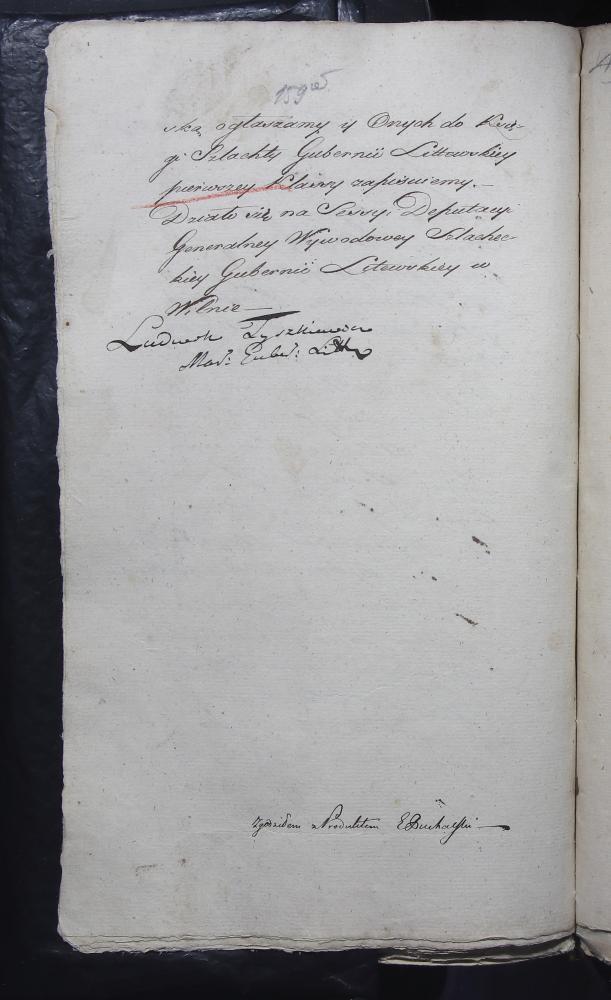 159
ską ogłaszamy y Onych do Księ-
gi Szlachty Gubernii Littewskiey
pierwszey Klassy zapisuiemy. —
Działo się na Sessyi Deputacyi
Generalney Wywodowey Szlachec-
kiey Gubernii Litewskiey w
Wilnie —
Ludwik Tyszkiewicz
Mar: Gube: Litt:
Zgodziłem z Produktem Buchalski